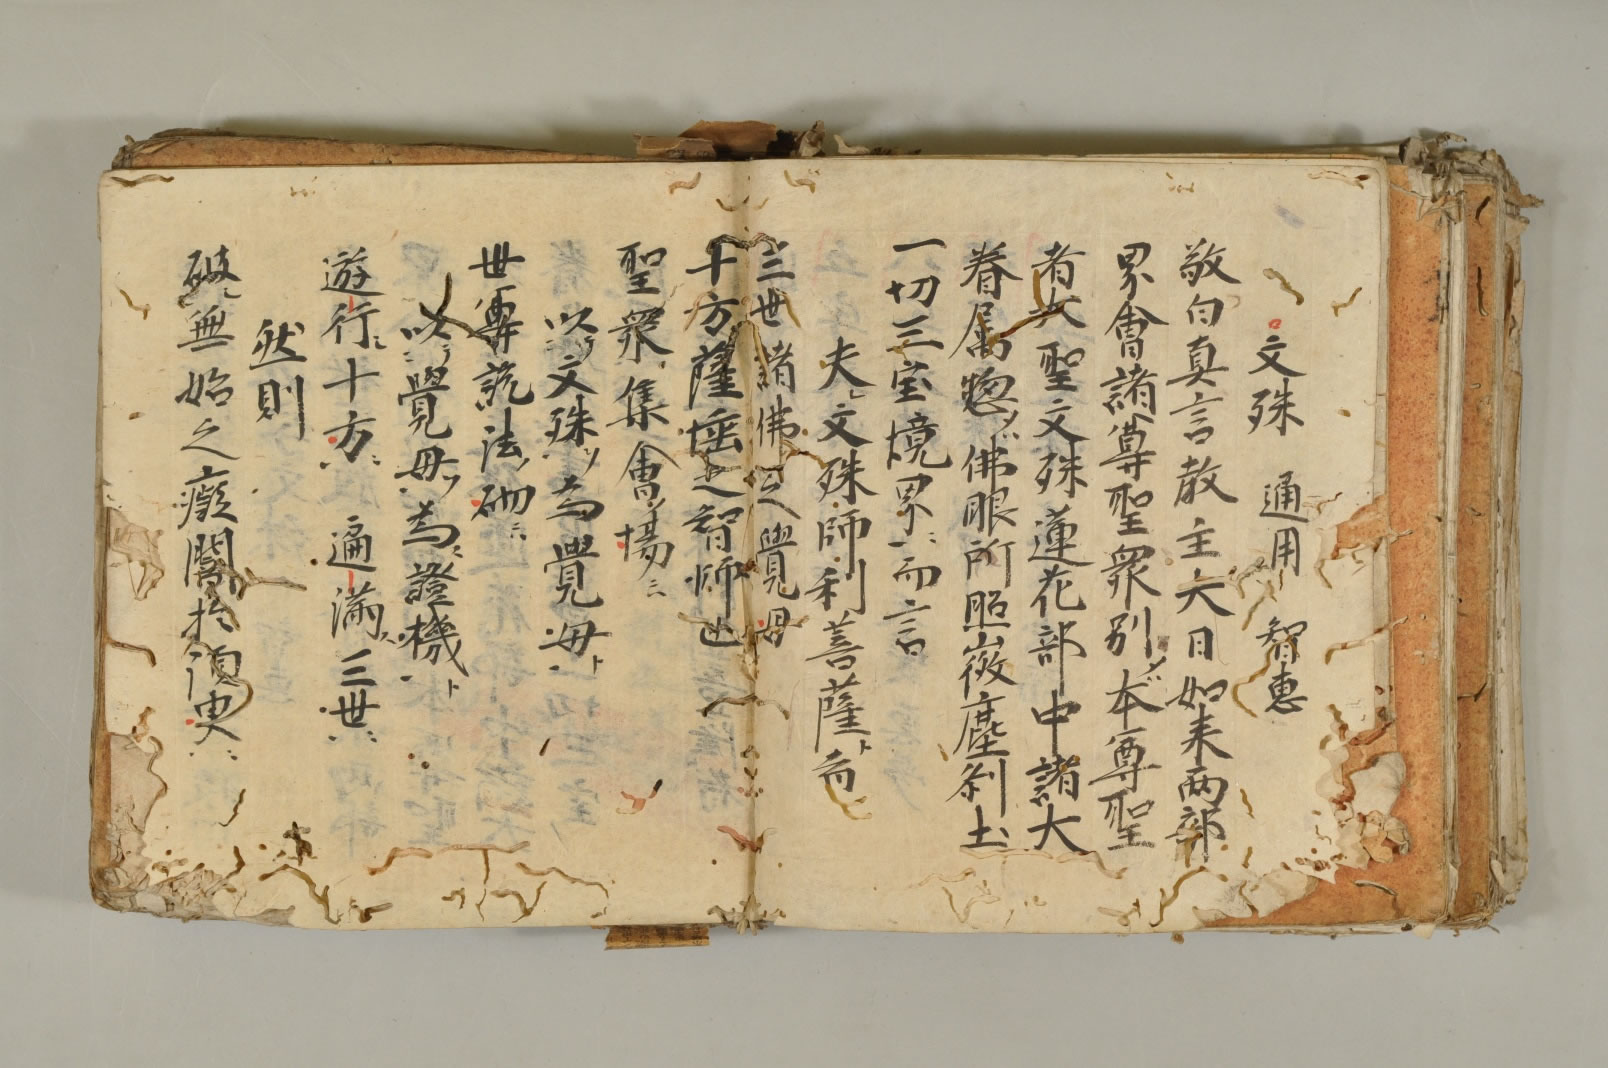 文殊　通用　智恵
敬白真言教主大日如来両部
界會諸尊聖衆別本尊聖
者大聖文殊蓮花部中諸大
眷属惣佛眼所照微塵刹土
一切三宝境界而言
夫文殊師利菩薩者
三世諸佛之覺母
十方薩埵之智師也
聖衆集會場ニ
以文殊ツ為覺母ト
世尊説法砌ニ
以覺母ツ為證機ト
遊行十方遍満三世
然則
破無始之癡闇於須臾